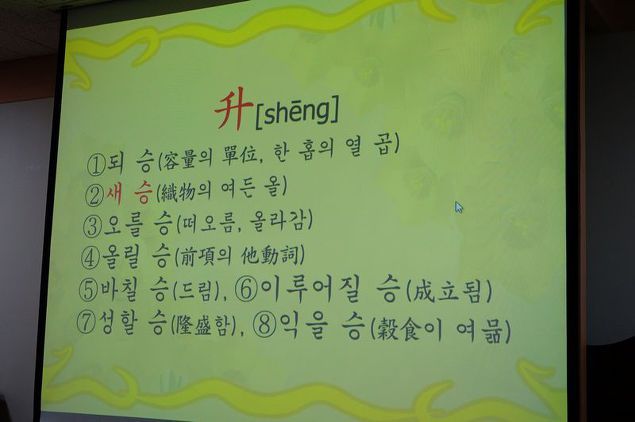 升[shēng]
①되 승(容量의 單位, 한 홉의 열 곱)
②새 승(織物의 여든 올)
③오를 승(떠오름, 올라감)
④올릴 승(前項의 他動詞)
⑤바칠 승(드림), ⑥이루어질 승(成立됨)
⑦성할 승(隆盛함), ⑧익을 승(穀食이 여묾)